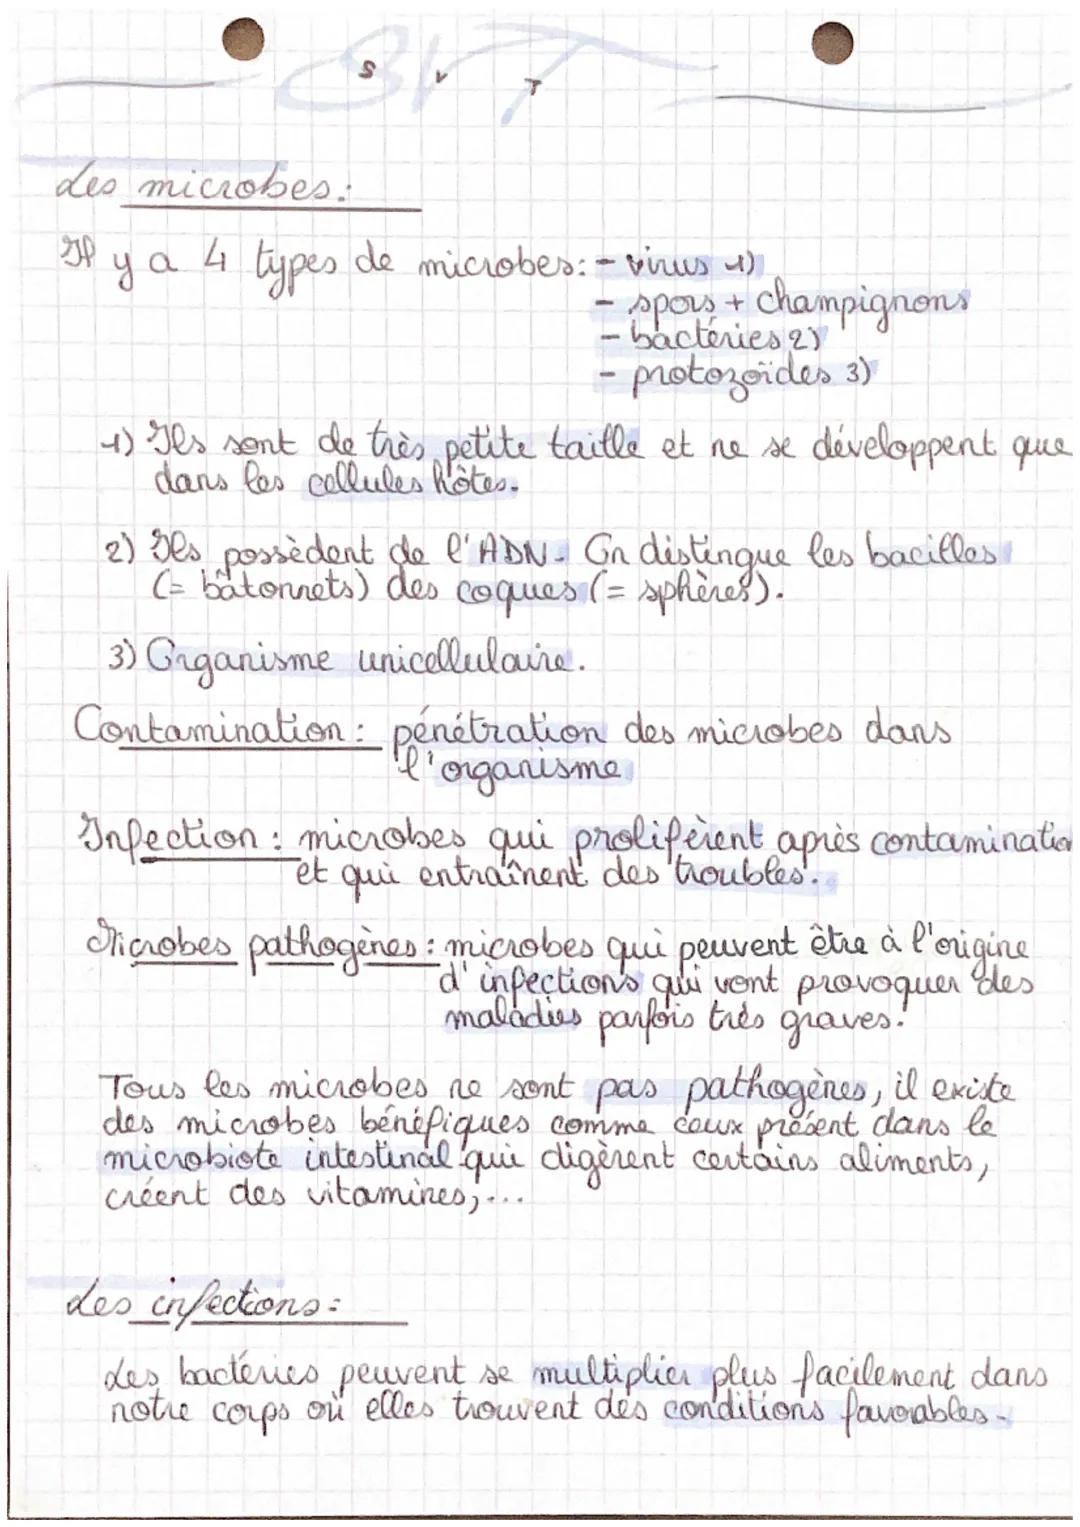 SVT
S V T
Les microbes:
Il y a 4 types de microbes: - virus 1)
- spors + champignons
- bactéries 2)
- protozoïdes 3)
1) Ils sont de très petite taille et ne se développent que
dans les cellules hôtes.
2) Ils possèdent de l'ADN. On distingue les bacilles
(= bâtonnets) des coques (= sphères).
3) Organisme unicellulaire.
Contamination: pénétration des microbes dans
l'organisme
Infection: microbes qui prolifèrent après contamination
et qui entraînent des troubles.
Microbes pathogènes: microbes qui peuvent être à l'origine
d'infections qui vont provoquer des
maladies parfois très graves.
Tous les microbes ne sont pas pathogènes, il existe
des microbes bénéfiques comme ceux présent dans le
microbiote intestinal qui digèrent certains aliments,
créent des vitamines,...
Les infections:
Les bactéries peuvent se multiplier plus facilement dans
notre corps où elles trouvent des conditions favorables.